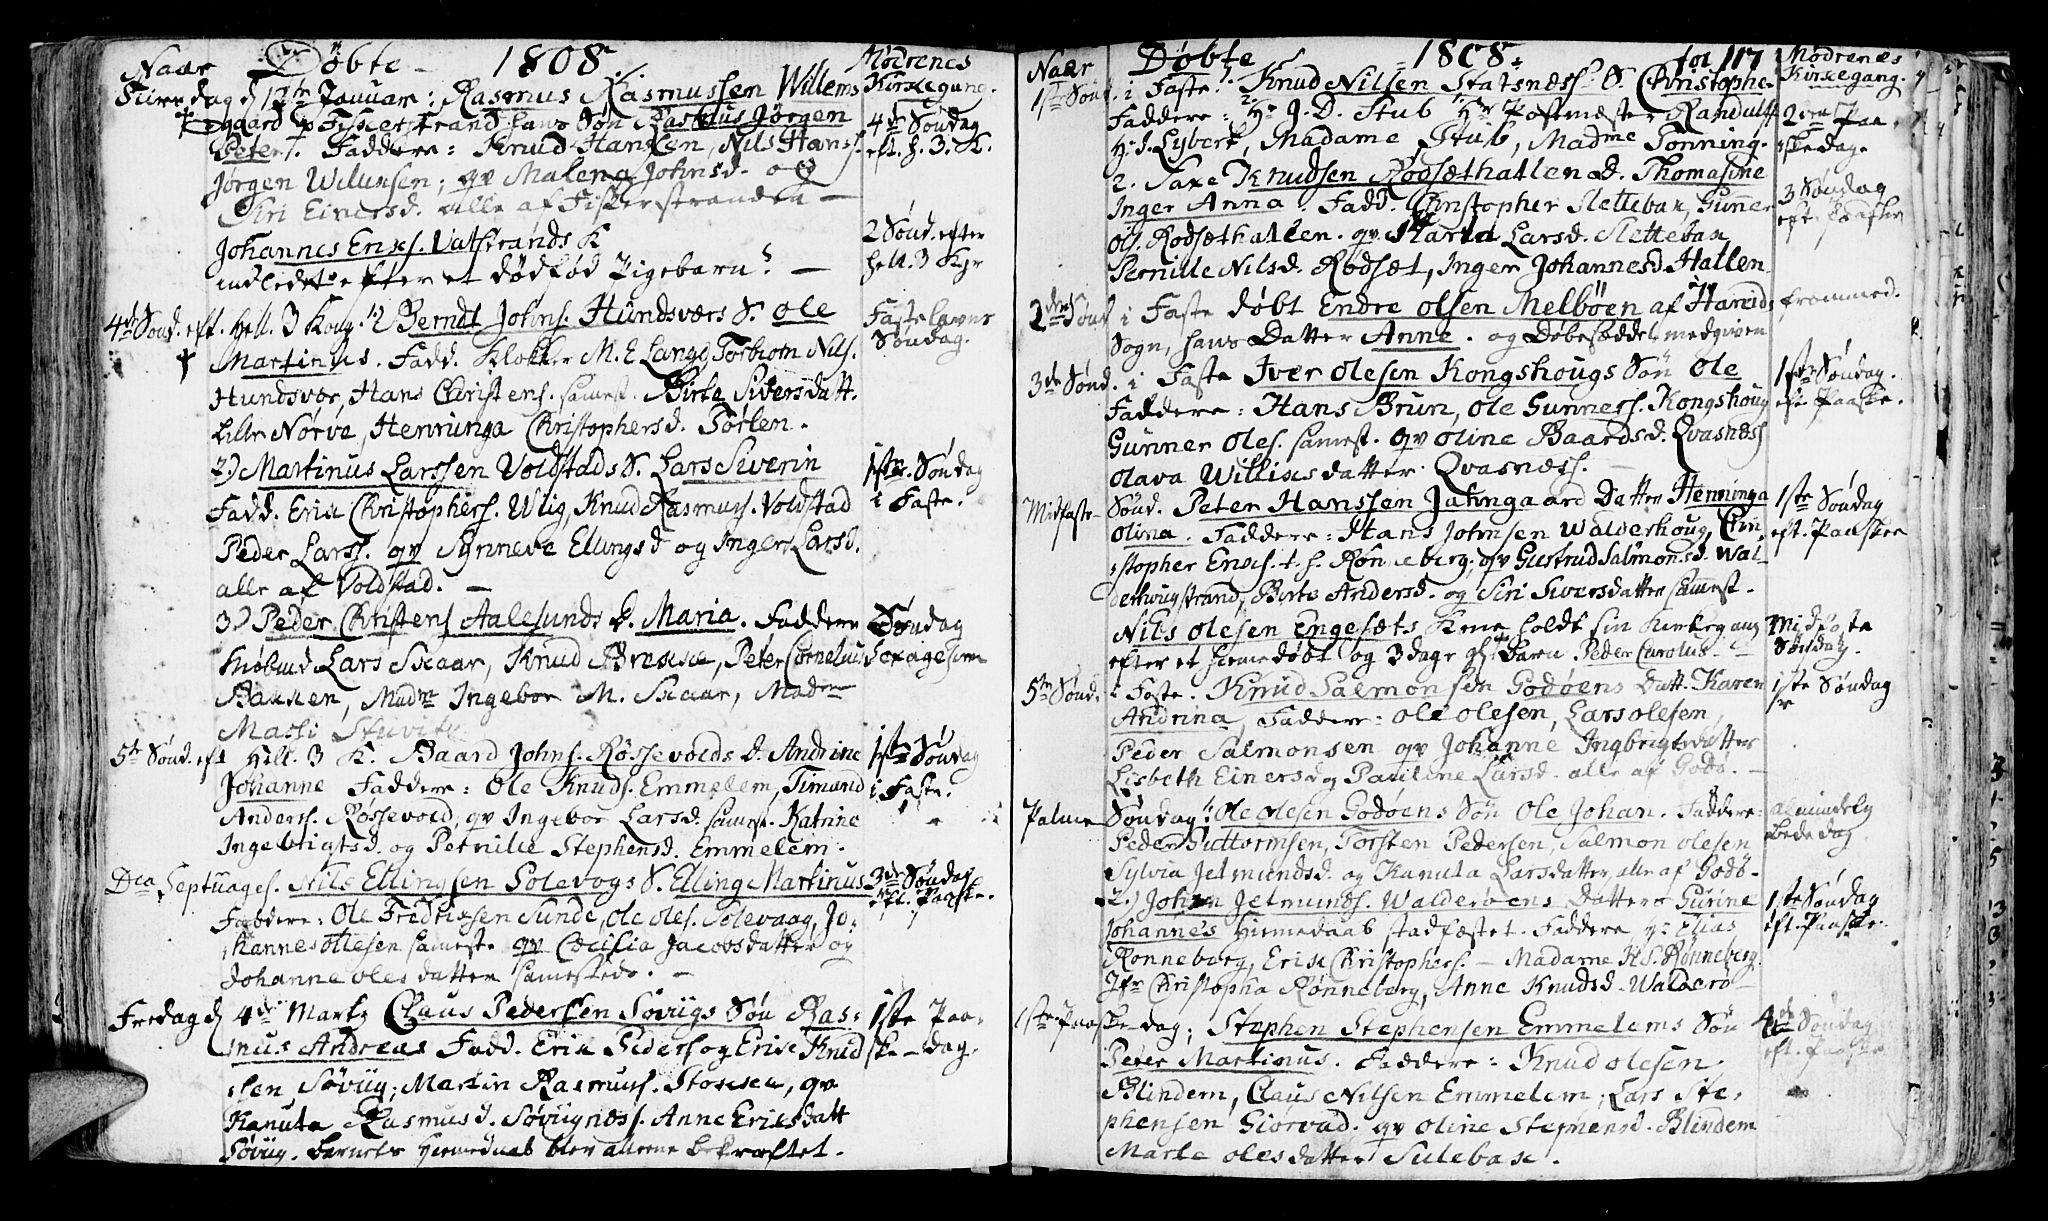 Naar Døbte 1808. Mødrenes
Kirkegang.
dag d 12te Januar: Rasmus Rasmussen Willems
gaard p Fiskerstrand hans Søn Rasmus Jørgen
Peter. Faddere: Knud Hansen, Nils Hanss.
Jørgen Wilumsen; qv Malena Johnsd. og
Siri Einersd. alle af Fiskerstranden —
4de Søndag
eft. h. 3. K.
Johannes Erics. Vatstrands K
indledet efter et dødfød Pigebarn. —
2 Sønd. efter
hell. 3 Kgr
4de Sønd. eft. Hell. 3 Kong. 1) Berndt Johns. Hundsværs S. Ole
Martinus. Fadd. Klokker M. E Lange Torbiørn Nils.
Hundsvær, Hans Christens. samest. Birte Siversdatt.
Lille Nørve, Henninga Christophersd. Tørlen.
Fastelavns
Søndag.
2) Martinus Larssen Voldstads S. Lars Siverin
Fadd. Erik Christophers. Ulig, Knud Rasmuss. Voldstad
Peder Larss. qv Synneve Elingsd og Inger Larsd.
alle af Voldstad. —
1ste Søndag
i Faste.
3) Peder Christens Aalesunds D. Maria. Faddere
Lars Skaar, Knud Brekke, Peter Cornelius
Bakken, Madm Ingebor M. Skaar, Madm
Massi Stuvitz
Søndag
Sexagesim
5te Sønd. eft Hell. 3 K. Baard Johns. Røssevolds D. Andrine
Johanne Faddere: Ole Knuds. Emmelem, Timand
Anderss. Røssevold, qv Ingebor Larsd. samest. Katrine
Ingebrigtsd. og Petnille Stephensd. Emmelem.
1ste Søndag
i Faste.
Dca Septuages. Nils Ellingsen Solevogs S. Elling Martinus
Faddere: Ole Fredriksen Sunde, Ole Oles. Solevaag, Jo-
hannes Ollesen sameste qv Cecilia Jacobsdatter og
Johanne Olesdatter samesteds. —
3die Søndag
eft. Paaske.
Fredag d 4de Marts Claus Pedersen Søviigs Søn Ras-
mus Andreas Fadd. Erik Peders og Erik Knud
sen Søviig; Martin Rasmuss. Storsen, qv
Kanuta Rasmusd. Søviignæss. Anne Ericsdatt
Søviig. Barnets Hiemedaab blev allene bekræftet.
1ste Paa-
ske-dag.
Naar Døbte 1808. fol 117 Mødrenes
Kirkegang.
1ste Sønd. i Faste 1. Knud Nilsen Statsnæss. S. Christophe
Faddere: Hr J. D. Stub Hr Postmester Randulf
H. S. Lybert, Madame Stub, Madme Tonning.
2den Paa-
skedag.
2. Saxe Knudsen Rødsæthatlen D. Thomasine
Inger Anna. Fadd. Christopher Slettebak, Gunner
Ols. Rødsæthatlen. qv Marta Larsd. Slettebak
Pernille Nilsd. Rødsæt, Inger Johannesd. Hatlen
3 Søndag
eft. Paaske
2den Sønd i Faste døbt Endre Olsen Melbøen af Hareids
Sogn, hans Datter Anne. og Døbeseddel medgiven
fremmed.
3de Sønd. i Faste Iver Olesen Kongshougs Søn Ole
Faddere: Hans Brun, Ole Gunners. Kongshoug
Gunner Oles. samest. qv Oline Baardsd. Qvasnæss
Olava Willixsdatter Qvasnæss. —
1ste Søndag.
eft. Paaske.
Midfaste- Sønd. Peter Hanssen Jahngaard Datter Henninga
Olina. Faddere: Hans Johnsen Walderhoug, Chri-
stopher Ericss. t. h. Rønneberg; qv Giertrud Salmonsd. Wal-
derhougstrand, Birte Andersd. og Siri Siversdatter samest.
1ste Søndag
eft. Paaske
Nils Olesen Engesæts Kone holdt sin Kirkegang
efter et hiemedøbt og 3 dage gl. Barn Peder Carolus.
Midfaste
Søndag.
5te Sønd. i Faste. Knud Salmonsen Godøens Datt. Karen
Andrina, Faddere: Ole Olesen, Lars Olesen,
Peder Salmonsen qv Johanne Ingbrigtsdatter
Lisbeth Einersd og Pauline Larsd. alle af Godø. —
1ste Søndag
Palme Søndag 1. Ole Olesen Godøens Søn Ole Johan. Faddere:
Peder Guttormsen, Torsten Pedersen, Salmon Olesen
Sylvia Jetmundsd. og Kanuta Larsdatter, alle af Godø.
almindelig
Bededag.
2.) Johan Jetmunds. Walderøens Datter Gurine
Johannes Hiemedaab stadfæstet. Faddere Hr Elias
Rønneberg, Erik Christophers. — Madame H. S. Rønneberg.
Jfr Christopha Rønneberg, Anne Knudsd. Walderø
1ste Søndag
eft. Paaske.
1ste Paaske dag; Stephen Stephensen Emmelems Søn
Peter Martinus. Faddere: Knud Olesen
Blindem, Claus Nilsen Emmelem; Lars Ste-
phensen Giørvad. qv Oline Stephensd. Blindem
Marte Olesdatter Sulebak.
4de Søndag
eft. Paaske